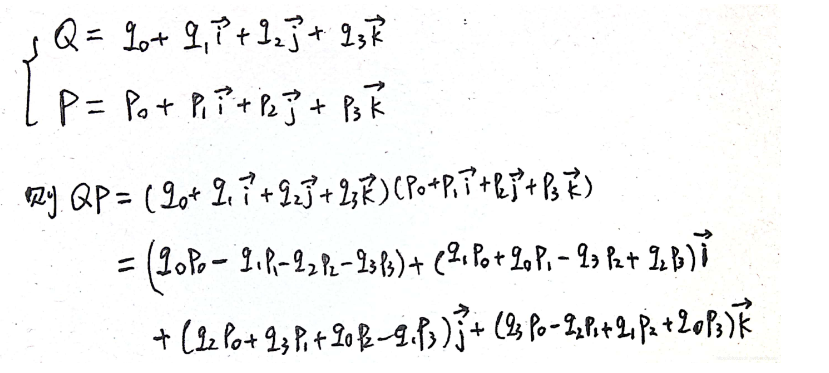 Q = q₀ + q₁i⃗ + q₂j⃗ + q₃k⃗
P = P₀ + P₁i⃗ + P₂j⃗ + P₃k⃗
则 QP = (q₀ + q₁i⃗ + q₂j⃗ + q₃k⃗)(P₀ + P₁i⃗ + P₂j⃗ + P₃k⃗)
= (q₀P₀ - q₁P₁ - q₂P₂ - q₃P₃) + (q₁P₀ + q₀P₁ - q₃P₂ + q₂P₃)i⃗
+ (q₂P₀ + q₃P₁ + q₀P₂ - q₁P₃)j⃗ + (q₃P₀ - q₂P₁ + q₁P₂ + q₀P₃)k⃗